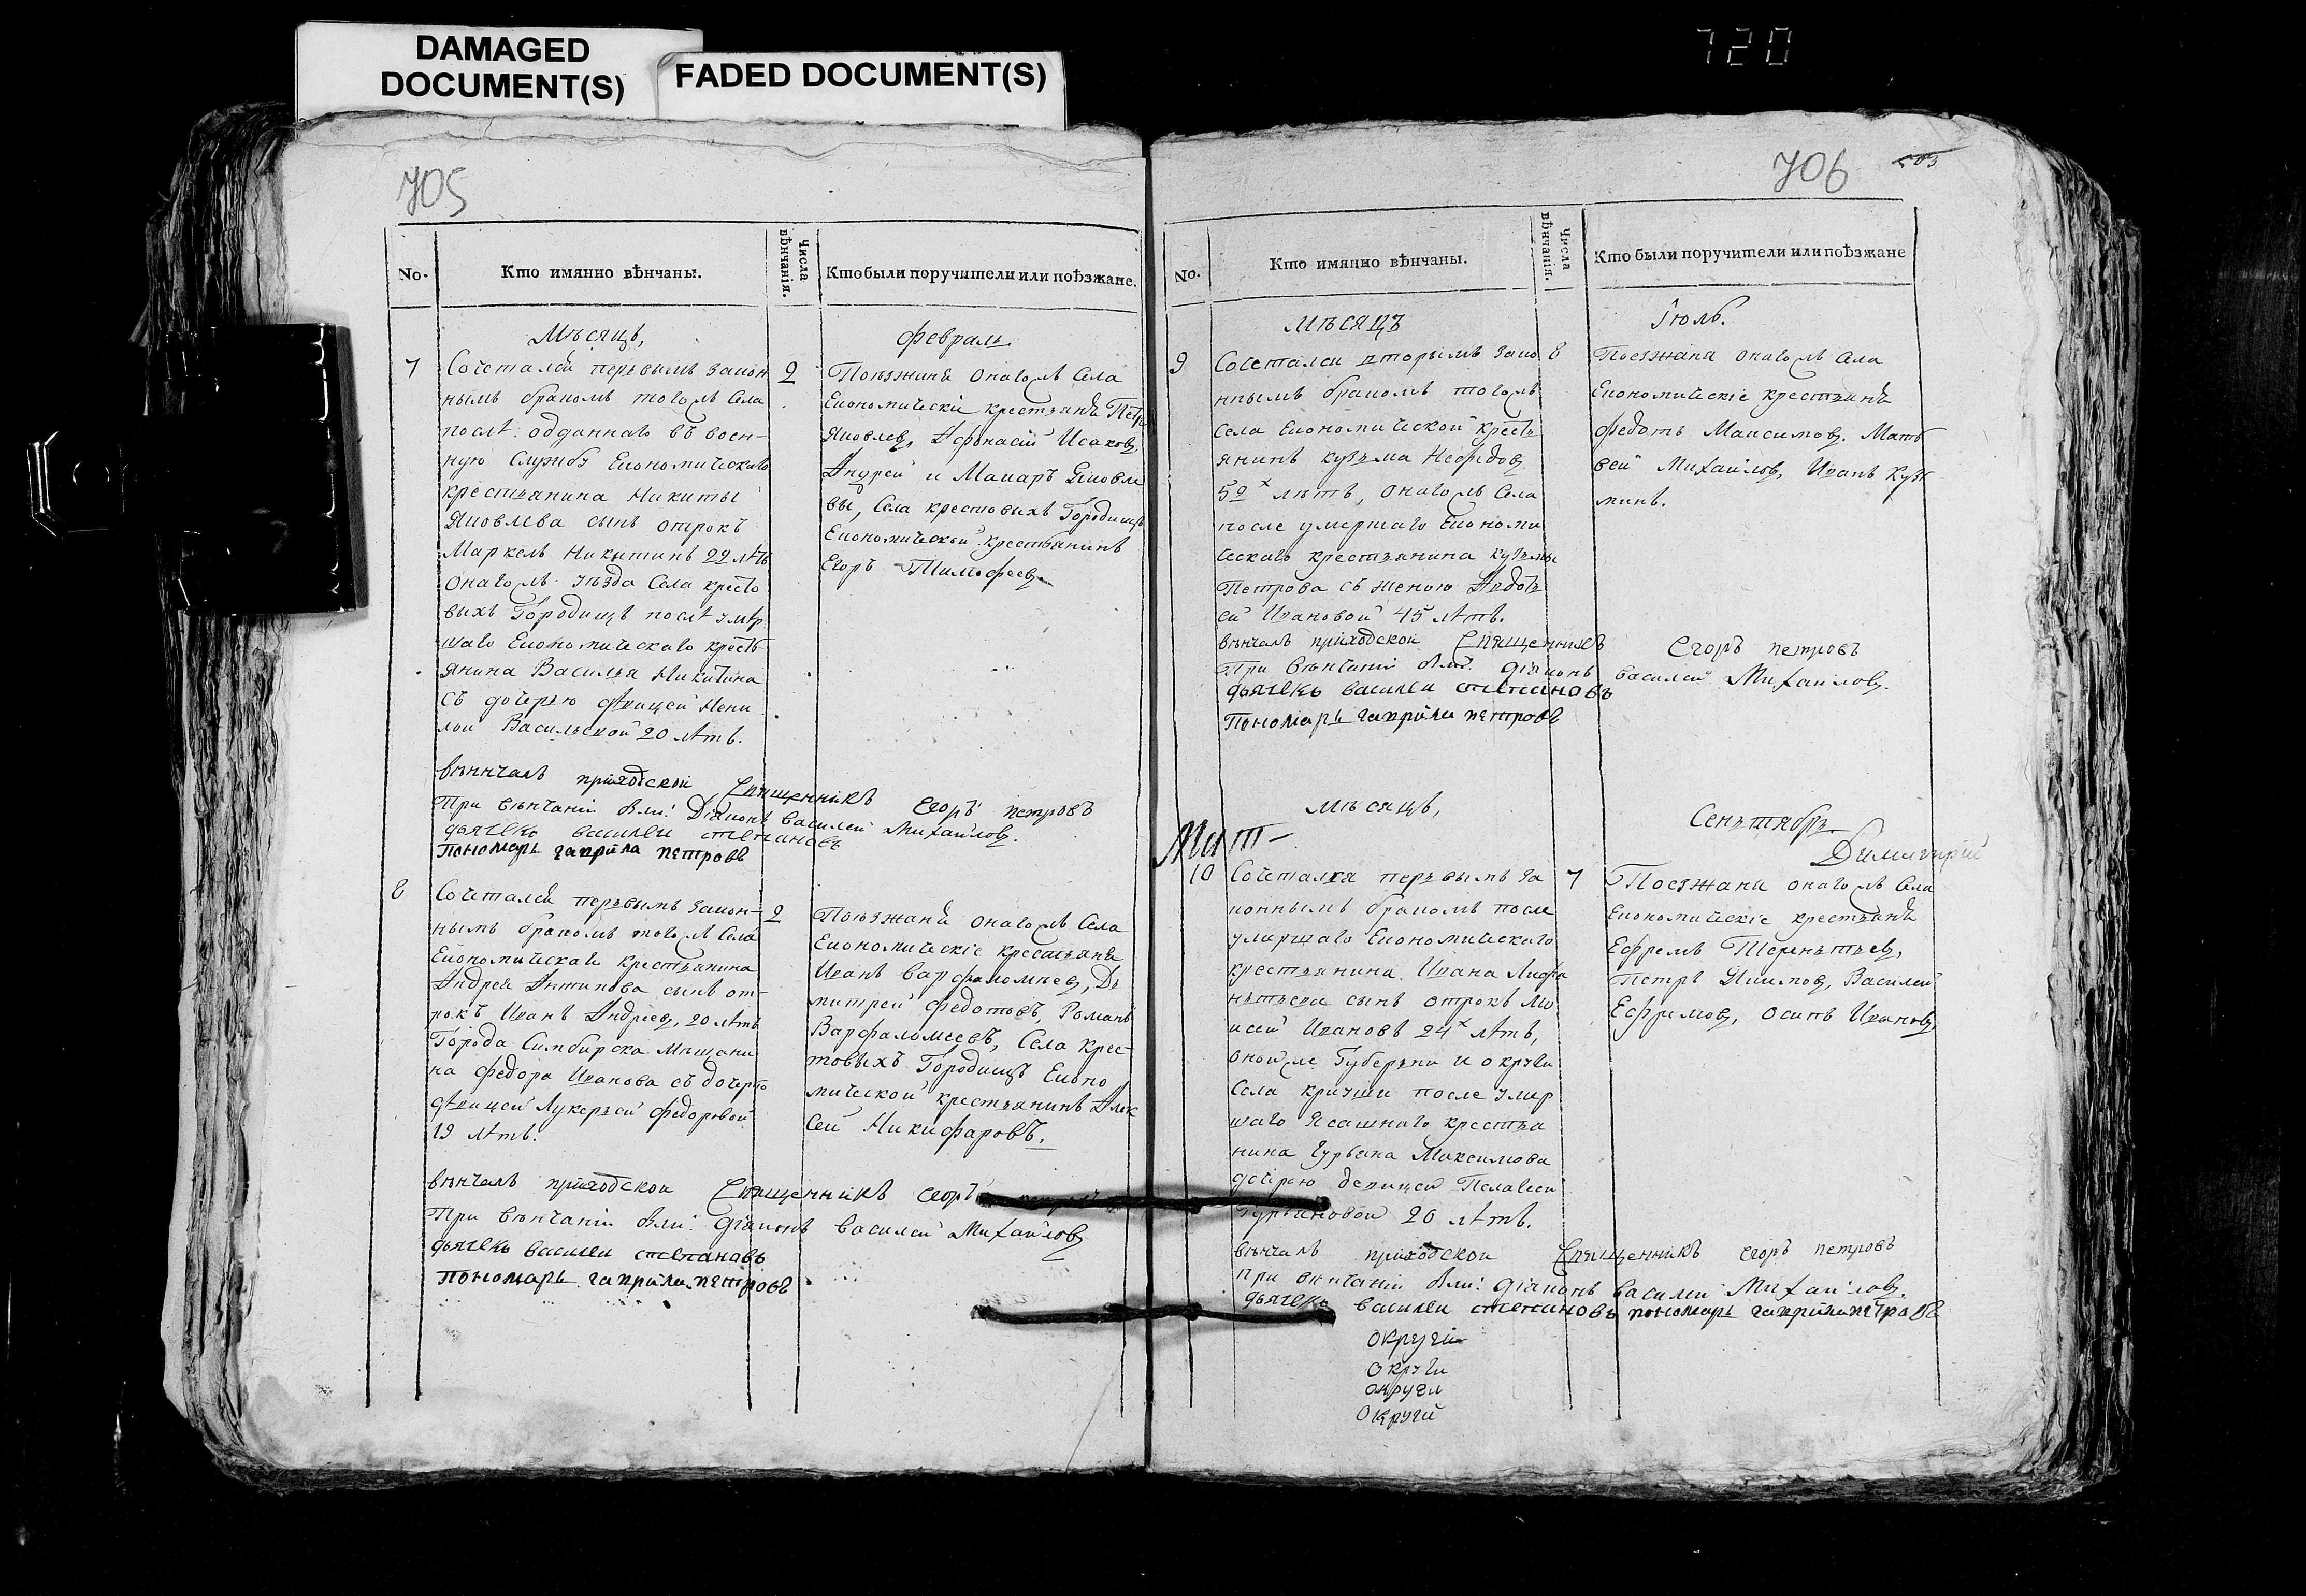 DAMAGED
DOCUMENT(S)
FADED DOCUMENT(S)
720
705
No.
Кто имянно вѣнчаны.
Числа вѣнчанія.
Кто были поручители или поѣзжане.
Мѣсяцъ,
февраль
7
Сочетался первымъ закон
нымъ бракомъ тогожъ села
послѣ отданнаго въ воен-
ную службу Економическаго
крестьянина Никиты
Яковлева сынъ отрокъ
Маркелъ Никитинъ 22 лѣтъ
онагожъ уѣзда Села кресто
выхъ Городищъ послѣ умер
шаго Економическаго кресть
янина Василья Никитина
съ дочерью девицей Нени
лой Васильевой 20 лѣтъ.
2
Поѣзжаня онагожъ Села
Економическіе крестьянѣ Петръ
Яковлевъ, Афонасій Исаковъ,
Андрей и Макаръ Яковле
вы, Села крестовыхъ Городищъ
Економической крестьянинъ
Егоръ Тимофеевъ
вѣнчалъ приходской Священникъ Егоръ петровъ
При вѣнчаніи были: Діаконъ Василей Михайловъ.
дьячекъ василеи степановъ
пономарь гаврила петровъ
8
Сочетался первымъ закон-
нымъ бракомъ тогожъ Села
Економическаго крестьянина
Андрея Антипова сынъ от-
рокъ Иванъ Андреевъ, 20 лѣтъ
Города Симбирска Мѣщани
на Федора Иванова съ дочерью
девицей Лукерьей Федоровой
19 лѣтъ.
2
Поѣзжанѣ онагожъ Села
Економическіе крестьянѣ
Иванъ Варфаломѣевъ, Дь
митрей Федотовъ, Романъ
Варфаломеевъ, Села крес-
товыхъ Городищъ Еконо
мической крестьянинъ Алек
сей Никифаровъ.
вѣнчалъ приходскои Священникъ егоръ
При вѣнчаніи были: Діаконъ Василей Михайловъ
дьячекъ василеи степановъ
пономарь гаврила петровъ
706
503
No.
Кто имянно вѣнчаны.
Числа вѣнчанія.
Кто были поручители или поѣзжане
Мѣсяцъ
Іюль.
9
Сочетался вторымъ зако
ннымъ бракомъ тогожъ
Села Економической кресть
янинъ кузьма Нефедовъ
52х лѣтъ, онагожъ Села
после умершаго Економи
ческаго крестьянина кузьмы
Петрова съ женою Авдоть
ей Ивановой 45 лѣтъ.
8
Поезжаня онагожъ Села
Економическіе крестьянѣ
Федотъ Максимовъ, Мать
вей Михайловъ, Иванъ Кузь
минъ.
вѣнчалъ приходской Священникъ Егоръ петровъ
При вѣнчаніи были: діаконъ василей Михайловъ.
дьячекъ василеи степановъ
Пономарь гаврила петровъ
Мѣсяцъ,
Сентябрь
Мит-
Димитрій
10
Сочетался первымъ за
коннымъ бракомъ после
умершаго Економическаго
крестьянина Ивана Лифа
нтьева сынъ отрокъ Мо
исей Ивановъ 24х лѣтъ,
оной же Губерніи и округи
Села криуши после умер
шаго Ясашнаго крестья
нина Гурьяна Максимова
дочерью девицей Пелагеей
Гурьяновой 20 лѣтъ.
7
Поезжани онагожъ Села
Економическіе крестьянѣ
Ефремъ Терентьевъ,
Петръ Якимовъ, Василей
Ефремовъ, Осипъ Ивановъ,
вѣнчалъ приходскои Священникъ егоръ петровъ
При вѣнчаніи были: діаконъ Василей Михайловъ.
дьячекъ василеи степановъ пономарь гаврила петровъ
округи
округи
округи
округи